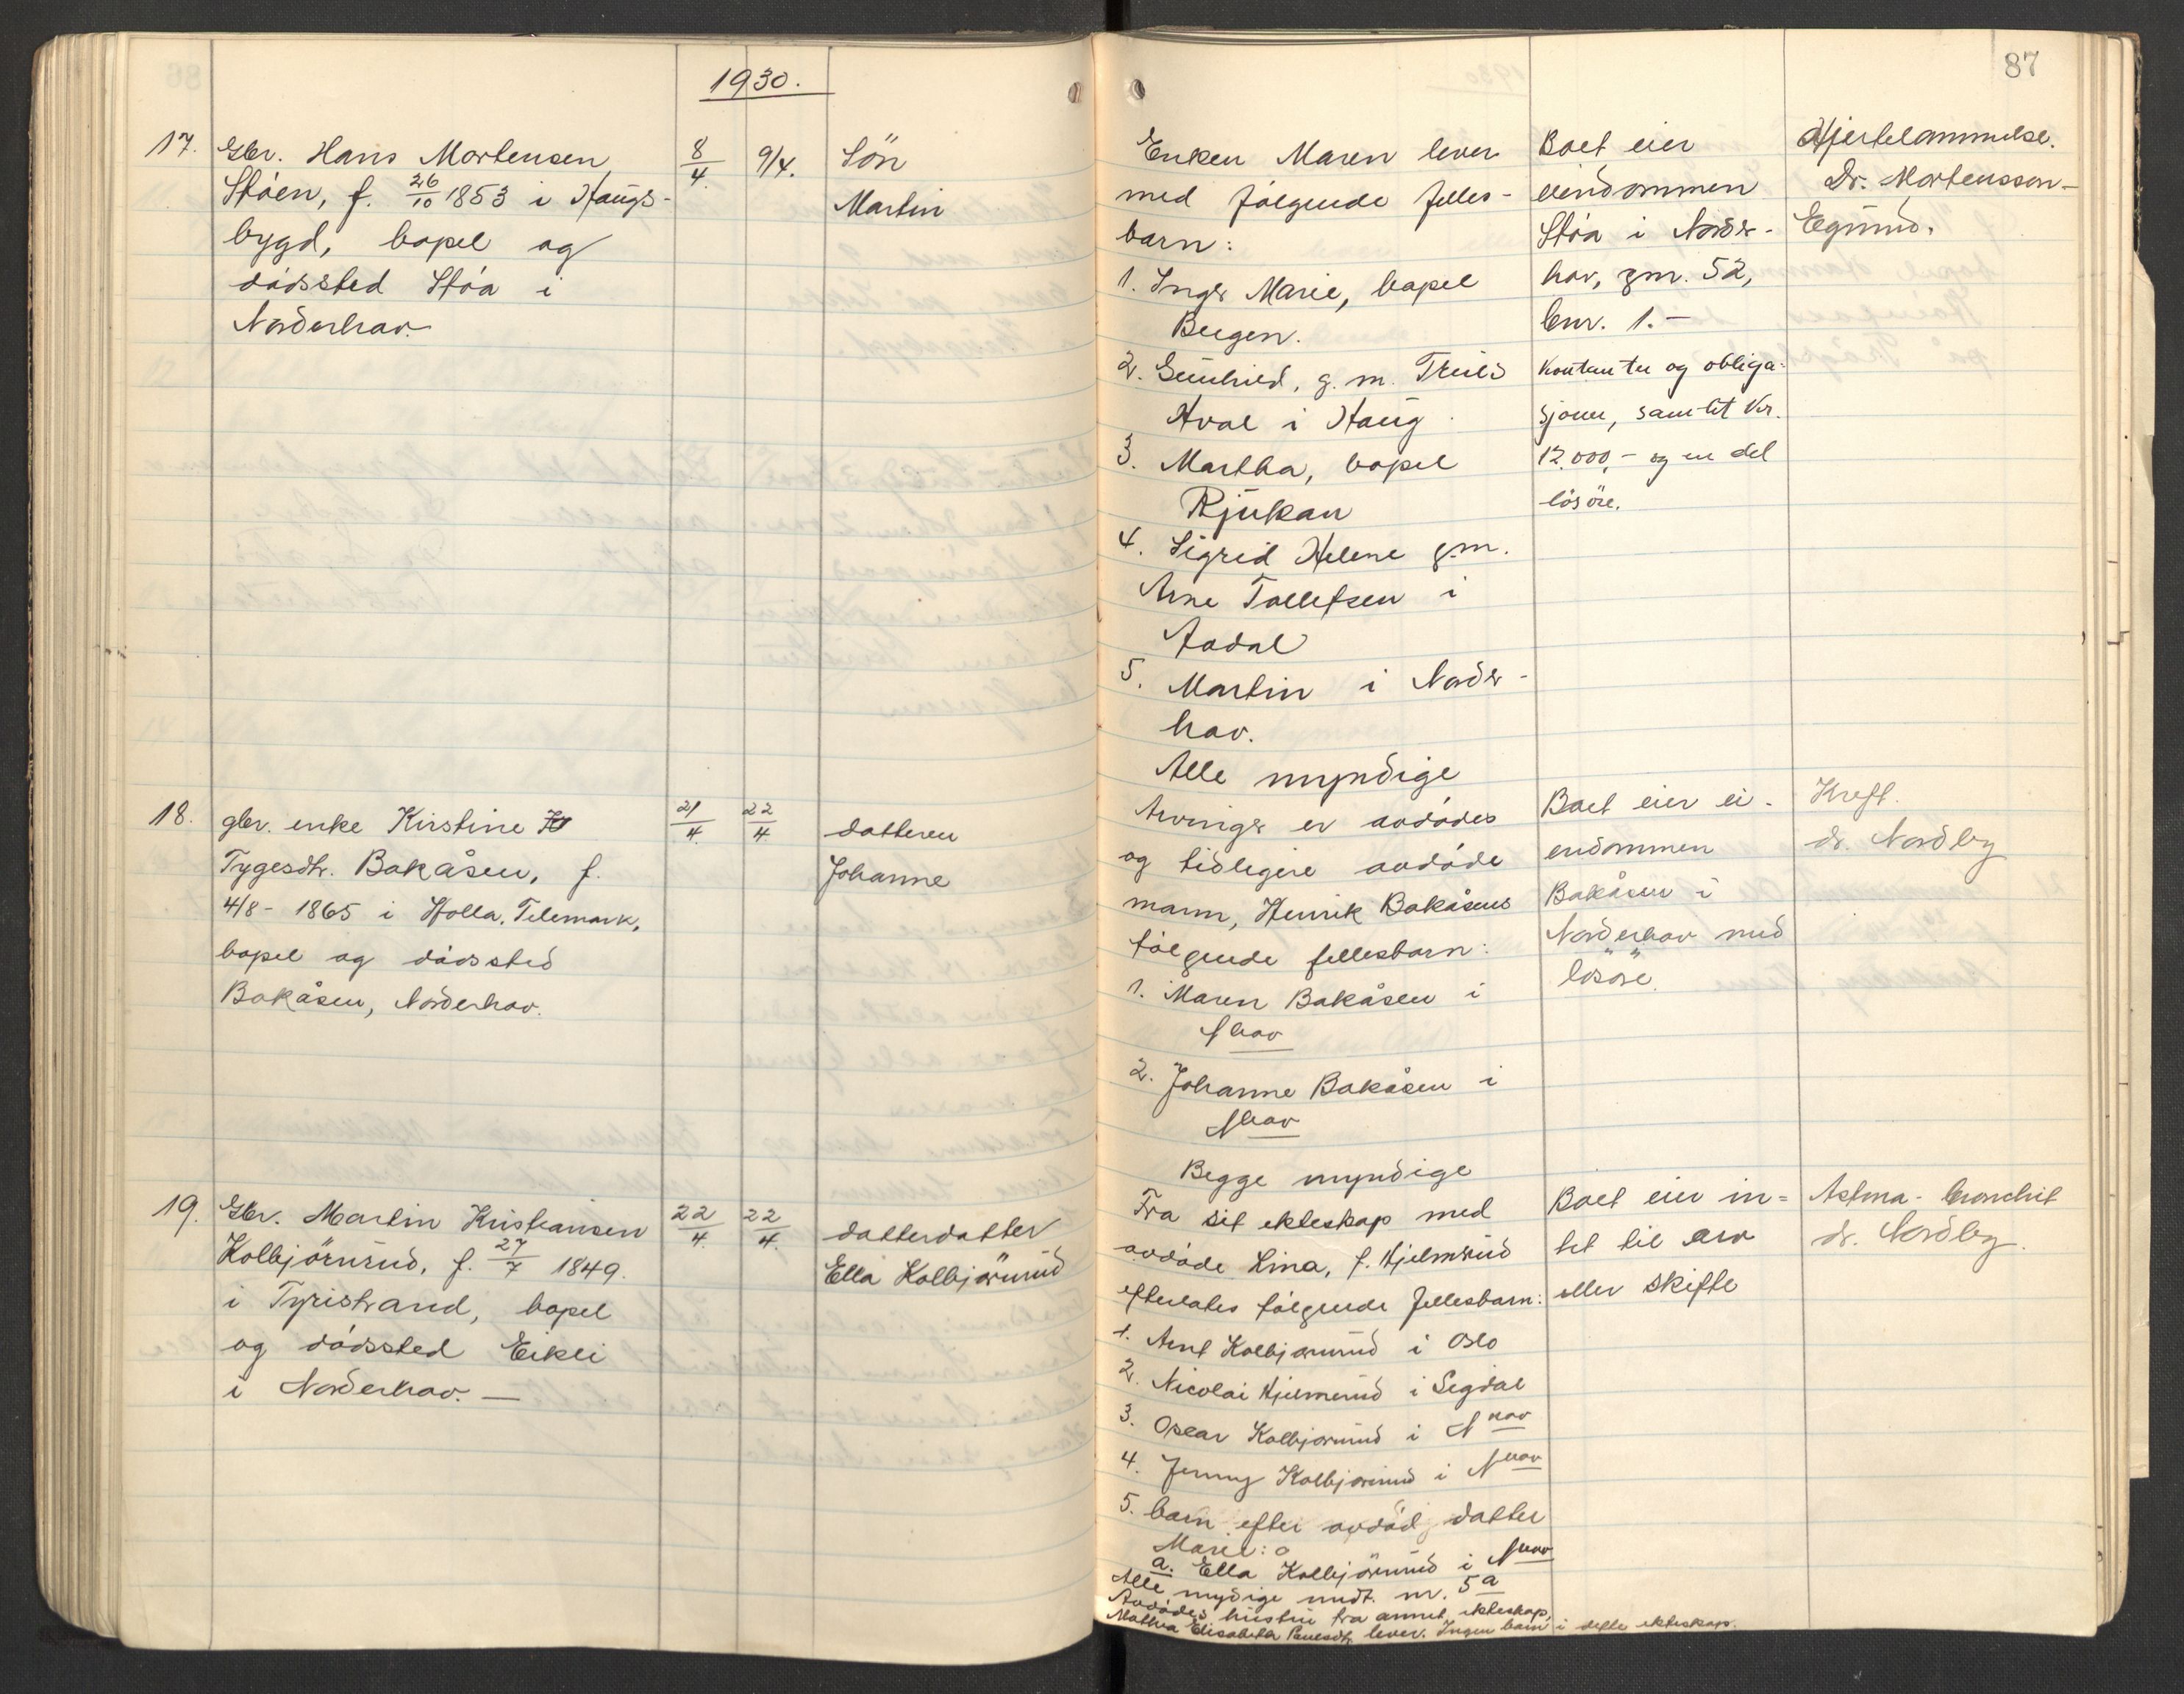 1930.
17.
Gbr. Hans Mortensen
Stóen, f. 26/10 1853 i Haugs-
bygd, bopel og
dódssted Stóa i
Norderhov.
8/4.
9/4.
Sön
Martin
18.
gbr. enke Kirstine
Tygesdtr. Bakåsen, f.
4/8 - 1865 i Holla, Telemark,
bopel og dódssted
Bakåsen, Norderhov.
21/4.
22/4.
datteren
Johanne
19.
Gbr. Martin Kristiansen
Kolbjörnrud, f. 27/7 1849.
i Tyristrand, bopel
og dódssted Eikli
i Norderhov. —
22/4.
22/4.
datterdatter
Ella Kolbjörnrud
87
Enken Maren lever
med fólgende felles-
barn:
1. Inger Marie, bopel
Bergen.
2. Gunhild, g. m. Truls
Hval i Haug
3. Martha, bopel
Rjukan
4. Sigrid Helene g.m.
Arne Tollefsen i
Aadal
5. Martin i Norder-
hov.
Alle myndige
Boet eier
eiendommen
Stóa i Norder-
hov, gnr. 52,
bnr. 1. —
Kontanter og obliga-
sjoner, samlet kr.
12.000,- og en del
lösöre.
Hjertelammelse.
Dr. Mortensson-
Egnund.
Arvinger er avdódes
og tidligere avdóde
mann, Henrik Bakåsens
fólgende fellesbarn:
1. Maren Bakåsen i
Nhov
2. Johanne Bakåsen i
Nhov
Begge myndige
Boet eier ei-
endommen
Bakåsen i
Norderhov med
lösöre.
Kreft.
dr. Nordby
Fra sit ekteskap med
avdóde Lina, f. Hjelmerud
efterlates fólgende fellesbarn:
1. Arnt Kolbjørnrud i Oslo
2. Nicolai Hjelmerud i Sigdal
3. Oscar Kolbjørnrud i Nhov
4. Jenny Kolbjørnrud i Nhov
5. barn efter avdöd datter
Marie:
a. Ella Kolbjörnrud i Nhov
Alle mydige undt. nr. 5 a
Avdódes hustru fra annet ekteskap,
Mathea Elisabeth lever. Ingen barn i dette ekteskap.
Boet eier in=
tet til arv
eller skifte
Astma - bronchit
dr. Nordby.